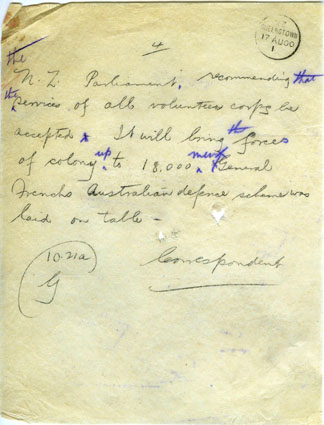 QUEENSTOWN
17 AU 00
1
4
the
N. Z. Parliament, recommending that
the services of all volunteer corps be
accepted x It will bring the forces
of colony up to 18.000 men x General
Frenchs Australian defense scheme was
laid on table -
Correspondent
10.21a
G